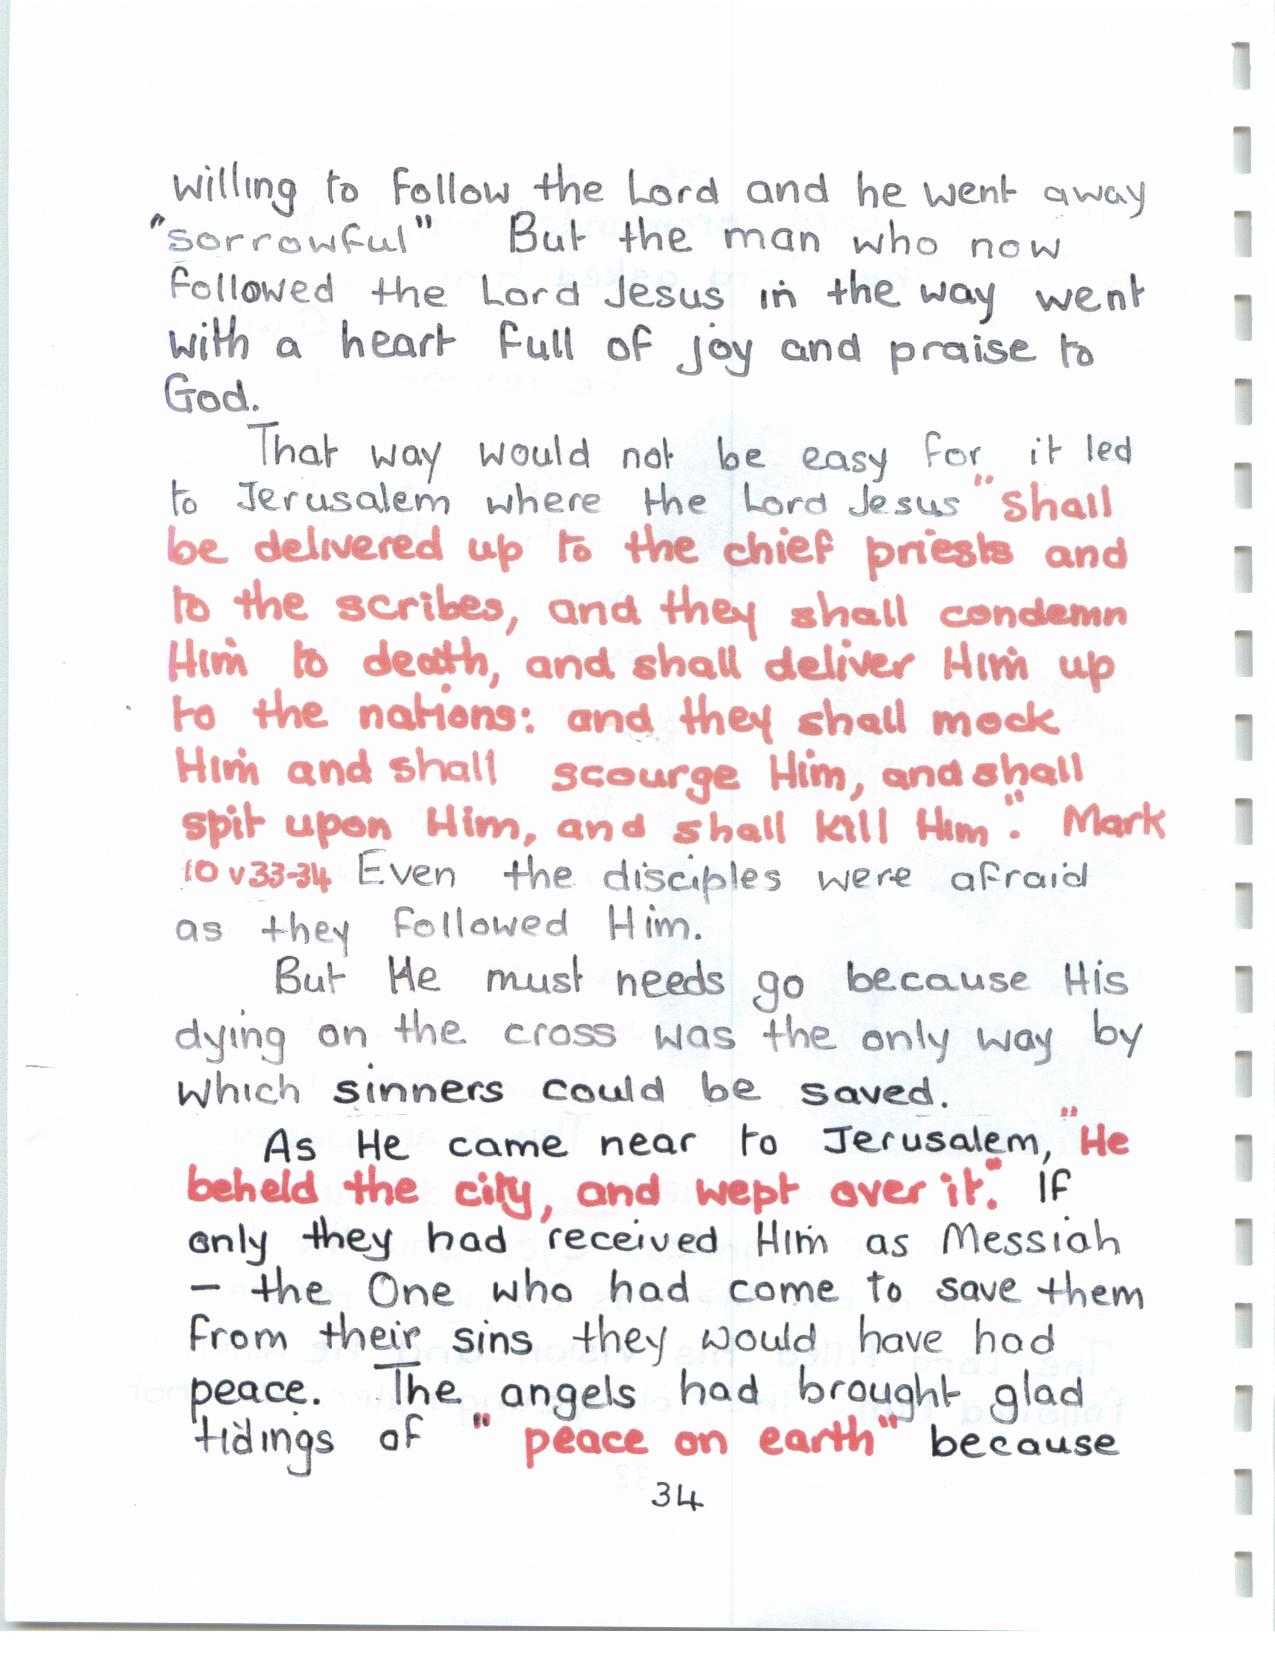 willing to follow the Lord and he went away
"sorrowful" But the man who now
followed the Lord Jesus in the way went
with a heart full of joy and praise to
God.
That way would not be easy for it led
to Jerusalem where the Lord Jesus "shall
be delivered up to the chief priests and
to the scribes, and they shall condemn
Him to death, and shall deliver Him up
to the nations: and they shall mock
Him and shall scourge Him, and shall
spit upon Him, and shall kill Him". Mark
10 v 33-34 Even the disciples were afraid
as they followed Him.
But He must needs go because His
dying on the cross was the only way by
which sinners could be saved.
As He came near to Jerusalem, "He
beheld the city, and wept over it". If
only they had received Him as Messiah
– the One who had come to save them
from their sins they would have had
peace. The angels had brought glad
tidings of "peace on earth" because
34